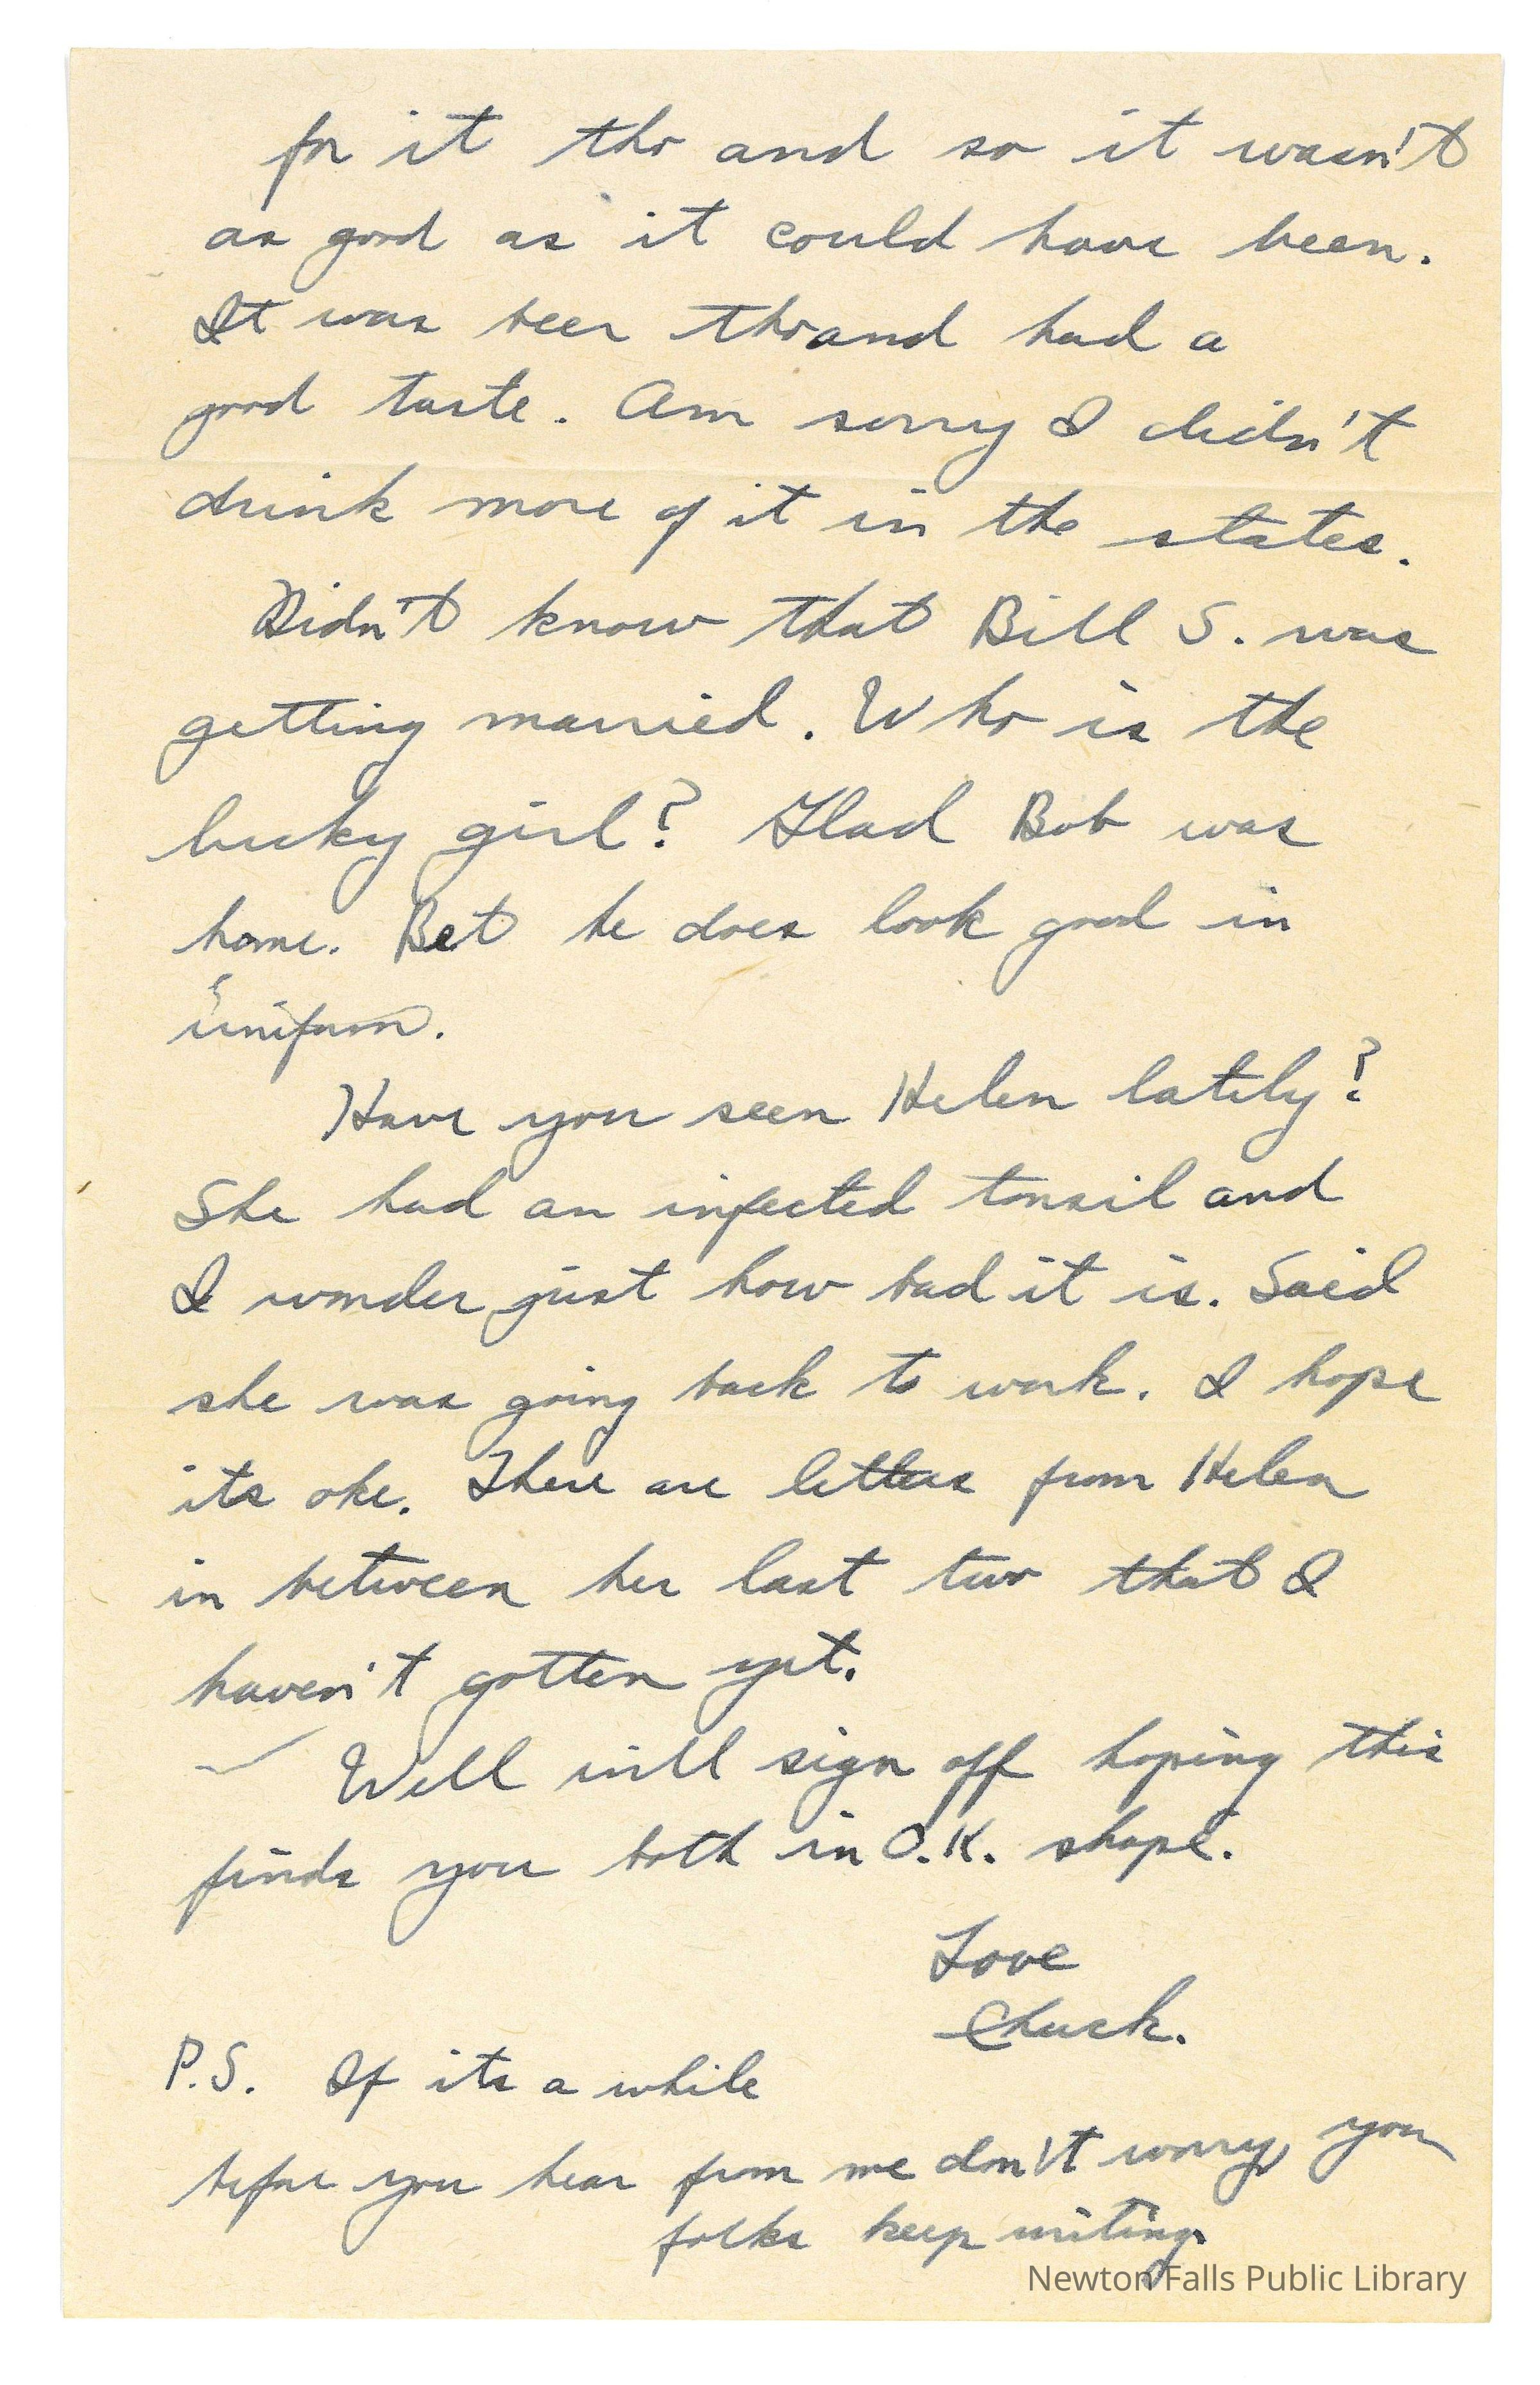 for it tho and so it wasn't
as good as it could have been.
It was beer tho and had a
good taste. Am sorry I didn't
drink more of it in the states.
Didn't know that Bill S. was
getting married. Who is the
lucky girl? Glad Bob was
home. Bet he does look good in
uniform.
Have you seen Helen lately?
She had an infected tonsil and
I wonder just how bad it is. Said
she was going back to work. I hope
its oke. There are letters from Helen
in between her last two that I
haven't gotten yet.
Well will sign off hoping this
finds you both in O.K. shape.
Love
Chuck.
P.S. If its a while
before you hear from me don't worry, you
folks keep writing.
Newton Falls Public Library